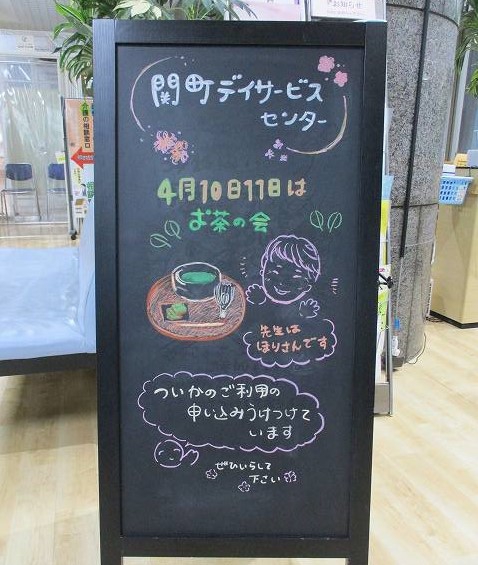 お知らせ
介護の相談窓口
関町デイサービス
センター
4月10日11日は
お茶の会
先生は
ほりさんです
ついかのご利用の
申し込みうけつけて
います
ぜひいらして
下さい